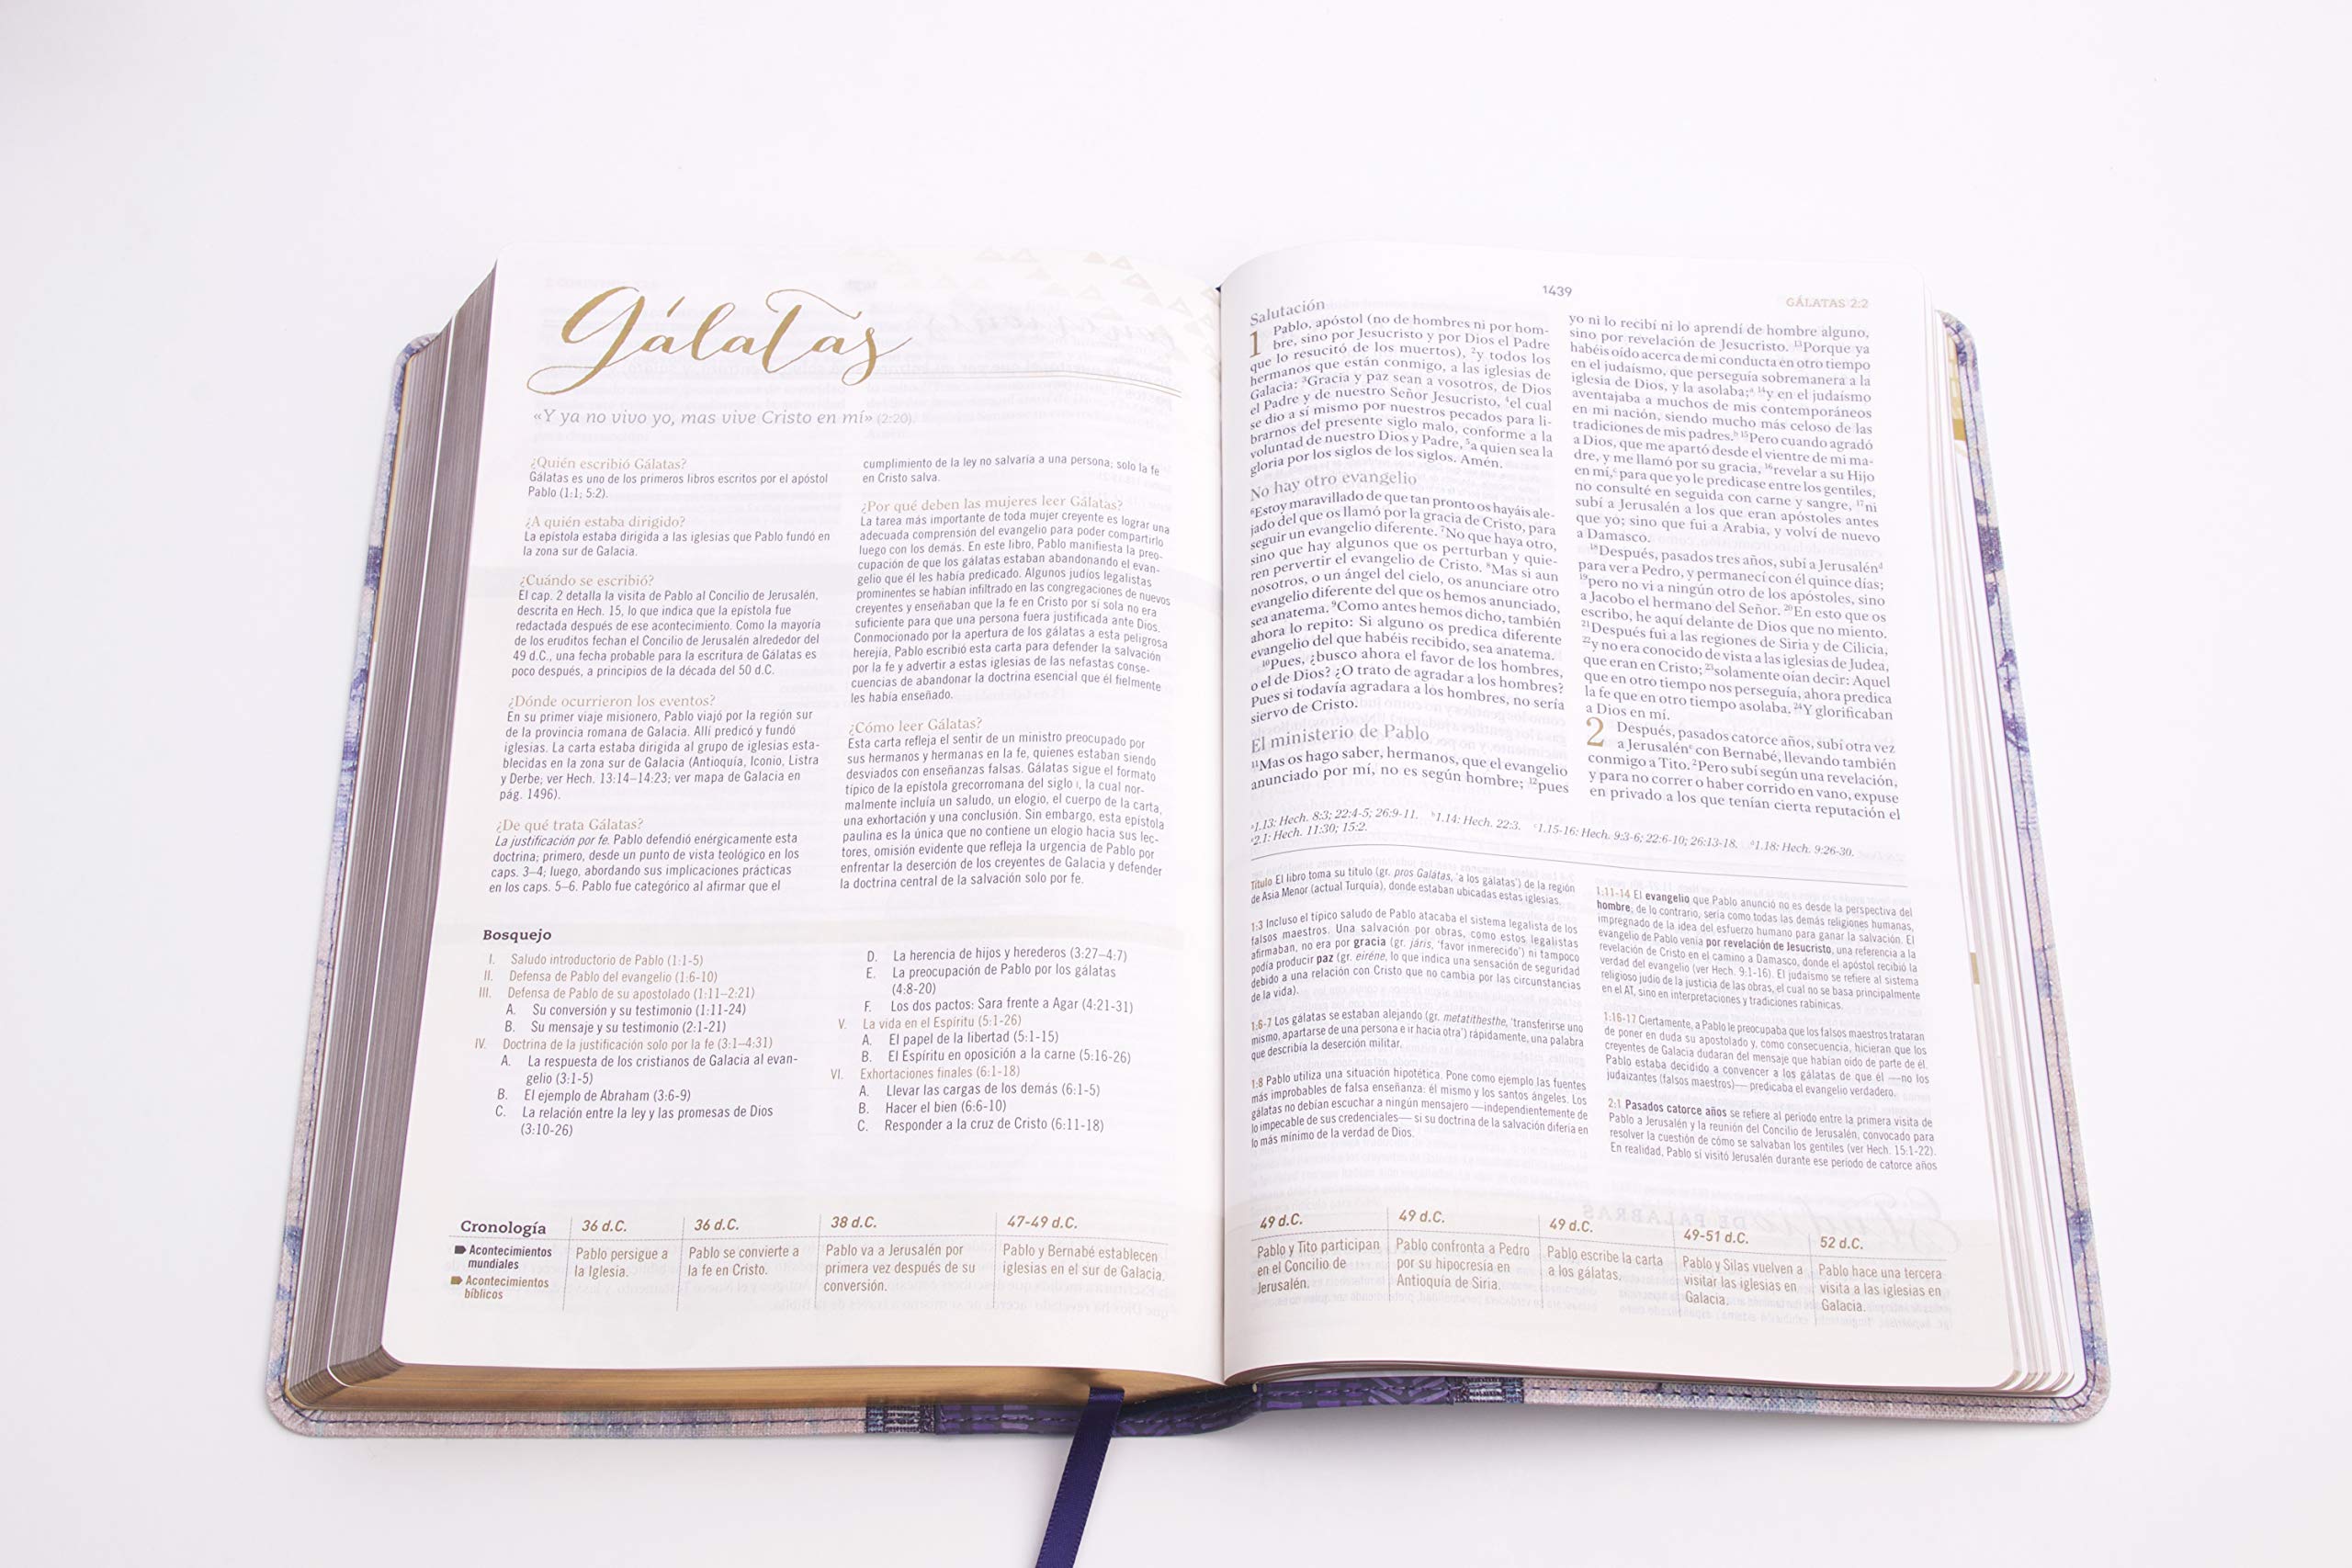 Gálatas
«Y ya no vivo yo, mas vive Cristo en mí» (2:20).
¿Quién escribió Gálatas?
Gálatas es uno de los primeros libros escritos por el apóstol
Pablo (1:1; 5:2).
¿A quién estaba dirigido?
La epístola estaba dirigida a las iglesias que Pablo fundó en
la zona sur de Galacia.
¿Cuándo se escribió?
El cap. 2 detalla la visita de Pablo al Concilio de Jerusalén,
descrita en Hech. 15, lo que indica que la epístola fue
redactada después de ese acontecimiento. Como la mayoría
de los eruditos fechan el Concilio de Jerusalén alrededor del
49 d.C., una fecha probable para la escritura de Gálatas es
poco después, a principios de la década del 50 d.C.
¿Dónde ocurrieron los eventos?
En su primer viaje misionero, Pablo viajó por la región sur
de la provincia romana de Galacia. Allí predicó y fundó
iglesias. La carta estaba dirigida al grupo de iglesias esta-
blecidas en la zona sur de Galacia (Antioquía, Iconio, Listra
y Derbe; ver Hech. 13:14–14:23; ver mapa de Galacia en
pág. 1496).
¿De qué trata Gálatas?
La justificación por fe. Pablo defendió enérgicamente esta
doctrina; primero, desde un punto de vista teológico en los
caps. 3–4; luego, abordando sus implicaciones prácticas
en los caps. 5–6. Pablo fue categórico al afirmar que el
cumplimiento de la ley no salvaría a una persona; solo la fe
en Cristo salva.
¿Por qué deben las mujeres leer Gálatas?
La tarea más importante de toda mujer creyente es lograr una
adecuada comprensión del evangelio para poder compartirlo
luego con los demás. En este libro, Pablo manifiesta la preo-
cupación de que los gálatas estaban abandonando el evan-
gelio que él les había predicado. Algunos judíos legalistas
prominentes se habían infiltrado en las congregaciones de nuevos
creyentes y enseñaban que la fe en Cristo por sí sola no era
suficiente para que una persona fuera justificada ante Dios.
Conmocionado por la apertura de los gálatas a esta peligrosa
herejía, Pablo escribió esta carta para defender la salvación
por la fe y advertir a estas iglesias de las nefastas conse-
cuencias de abandonar la doctrina esencial que él fielmente
les había enseñado.
¿Cómo leer Gálatas?
Esta carta refleja el sentir de un ministro preocupado por
sus hermanos y hermanas en la fe, quienes estaban siendo
desviados con enseñanzas falsas. Gálatas sigue el formato
típico de la epístola grecorromana del siglo I, la cual nor-
malmente incluía un saludo, un elogio, el cuerpo de la carta,
una exhortación y una conclusión. Sin embargo, esta epístola
paulina es la única que no contiene un elogio hacia sus lec-
tores, omisión evidente que refleja la urgencia de Pablo por
enfrentar la deserción de los creyentes de Galacia y defender
la doctrina central de la salvación solo por fe.
Bosquejo
I. Saludo introductorio de Pablo (1:1-5)
II. Defensa de Pablo del evangelio (1:6-10)
III. Defensa de Pablo de su apostolado (1:11–2:21)
A. Su conversión y su testimonio (1:11-24)
B. Su mensaje y su testimonio (2:1-21)
IV. Doctrina de la justificación solo por la fe (3:1–4:31)
A. La respuesta de los cristianos de Galacia al evan-
gelio (3:1-5)
B. El ejemplo de Abraham (3:6-9)
C. La relación entre la ley y las promesas de Dios
(3:10-26)
D. La herencia de hijos y herederos (3:27–4:7)
E. La preocupación de Pablo por los gálatas
(4:8-20)
F. Los dos pactos: Sara frente a Agar (4:21-31)
V. La vida en el Espíritu (5:1-26)
A. El papel de la libertad (5:1-15)
B. El Espíritu en oposición a la carne (5:16-26)
VI. Exhortaciones finales (6:1-18)
A. Llevar las cargas de los demás (6:1-5)
B. Hacer el bien (6:6-10)
C. Responder a la cruz de Cristo (6:11-18)
Cronología
Acontecimientos
mundiales
Acontecimientos
bíblicos
36 d.C.
Pablo persigue a
la Iglesia.
36 d.C.
Pablo se convierte a
la fe en Cristo.
38 d.C.
Pablo va a Jerusalén por
primera vez después de su
conversión.
47-49 d.C.
Pablo y Bernabé establecen
iglesias en el sur de Galacia.
1439
GÁLATAS 2:2
Salutación
1 Pablo, apóstol (no de hombres ni por hom-
bre, sino por Jesucristo y por Dios el Padre
que lo resucitó de los muertos), ²y todos los
hermanos que están conmigo, a las iglesias de
Galacia: ³Gracia y paz sean a vosotros, de Dios
el Padre y de nuestro Señor Jesucristo, ⁴el cual
se dio a sí mismo por nuestros pecados para li-
brarnos del presente siglo malo, conforme a la
voluntad de nuestro Dios y Padre, ⁵a quien sea la
gloria por los siglos de los siglos. Amén.
No hay otro evangelio
⁶Estoy maravillado de que tan pronto os hayáis ale-
jado del que os llamó por la gracia de Cristo, para
seguir un evangelio diferente. ⁷No que haya otro,
sino que hay algunos que os perturban y quie-
ren pervertir el evangelio de Cristo. ⁸Mas si aun
nosotros, o un ángel del cielo, os anunciare otro
evangelio diferente del que os hemos anunciado,
sea anatema. ⁹Como antes hemos dicho, también
ahora lo repito: Si alguno os predica diferente
evangelio del que habéis recibido, sea anatema.
¹⁰Pues, ¿busco ahora el favor de los hombres,
o el de Dios? ¿O trato de agradar a los hombres?
Pues si todavía agradara a los hombres, no sería
siervo de Cristo.
El ministerio de Pablo
¹¹Mas os hago saber, hermanos, que el evangelio
anunciado por mí, no es según hombre; ¹²pues
yo ni lo recibí ni lo aprendí de hombre alguno,
sino por revelación de Jesucristo. ¹³Porque ya
habéis oído acerca de mi conducta en otro tiempo
en el judaísmo, que perseguía sobremanera a la
iglesia de Dios, y la asolaba;ᵃ ¹⁴y en el judaísmo
aventajaba a muchos de mis contemporáneos
en mi nación, siendo mucho más celoso de las
tradiciones de mis padres.ᵇ ¹⁵Pero cuando agradó
a Dios, que me apartó desde el vientre de mi ma-
dre, y me llamó por su gracia, ¹⁶revelar a su Hijo
en mí,ᶜ para que yo le predicase entre los gentiles,
no consulté en seguida con carne y sangre, ¹⁷ni
subí a Jerusalén a los que eran apóstoles antes
que yo; sino que fui a Arabia, y volví de nuevo
a Damasco.
¹⁸Después, pasados tres años, subí a Jerusalénᵈ
para ver a Pedro, y permanecí con él quince días;
¹⁹pero no vi a ningún otro de los apóstoles, sino
a Jacobo el hermano del Señor. ²⁰En esto que os
escribo, he aquí delante de Dios que no miento.
²¹Después fui a las regiones de Siria y de Cilicia,
²²y no era conocido de vista a las iglesias de Judea,
que eran en Cristo; ²³solamente oían decir: Aquel
que en otro tiempo nos perseguía, ahora predica
la fe que en otro tiempo asolaba. ²⁴Y glorificaban
a Dios en mí.
2 Después, pasados catorce años, subí otra vez
a Jerusalénᵉ con Bernabé, llevando también
conmigo a Tito. ²Pero subí según una revelación,
y para no correr o haber corrido en vano, expuse
en privado a los que tenían cierta reputación el
ᵃ1.13: Hech. 8:3; 22:4-5; 26:9-11. ᵇ1.14: Hech. 22:3. ᶜ1.15-16: Hech. 9:3-6; 22:6-10; 26:13-18. ᵈ1.18: Hech. 9:26-30.
ᵉ2.1: Hech. 11:30; 15:2.
Título El libro toma su título (gr. pros Galatas, 'a los gálatas') de la región
de Asia Menor (actual Turquía), donde estaban ubicadas estas iglesias.
1:3 Incluso el típico saludo de Pablo atacaba el sistema legalista de los
falsos maestros. Una salvación por obras, como estos legalistas
afirmaban, no era por gracia (gr. járis, 'favor inmerecido') ni tampoco
podía producir paz (gr. eiréne, lo que indica una sensación de seguridad
debido a una relación con Cristo que no cambia por las circunstancias
de la vida).
1:6-7 Los gálatas se estaban alejando (gr. metatithesthe, 'transferirse uno
mismo, apartarse de una persona e ir hacia otra') rápidamente, una palabra
que describía la deserción militar.
1:8 Pablo utiliza una situación hipotética. Pone como ejemplo las fuentes
más improbables de falsa enseñanza: él mismo y los santos ángeles. Los
gálatas no debían escuchar a ningún mensajero —independientemente de
lo impecable de sus credenciales— si su doctrina de la salvación difería en
lo más mínimo de la verdad de Dios.
1:11-14 El evangelio que Pablo anunció no es desde la perspectiva del
hombre, de lo contrario, sería como todas las demás religiones humanas,
impregnado de la idea del esfuerzo humano para ganar la salvación. El
evangelio de Pablo venía por revelación de Jesucristo, una referencia a la
revelación de Cristo en el camino a Damasco, donde el apóstol recibió la
verdad del evangelio (ver Hech. 9:1-16). El judaísmo se refiere al sistema
religioso judío de la justicia de las obras, el cual no se basa principalmente
en el AT, sino en interpretaciones y tradiciones rabínicas.
1:16-17 Ciertamente, a Pablo le preocupaba que los falsos maestros trataran
de poner en duda su apostolado y, como consecuencia, hicieran que los
creyentes de Galacia dudaran del mensaje que habían oído de parte de él.
Pablo estaba decidido a convencer a los gálatas de que él —no los
judaizantes (falsos maestros)— predicaba el evangelio verdadero.
2:1 Pasados catorce años se refiere al período entre la primera visita de
Pablo a Jerusalén y la reunión del Concilio de Jerusalén, convocado para
resolver la cuestión de cómo se salvaban los gentiles (ver Hech. 15:1-22).
En realidad, Pablo sí visitó Jerusalén durante ese período de catorce años
49 d.C.
Pablo y Tito participan
en el Concilio de
Jerusalén.
49 d.C.
Pablo confronta a Pedro
por su hipocresía en
Antioquía de Siria.
49 d.C.
Pablo escribe la carta
a los gálatas.
49-51 d.C.
Pablo y Silas vuelven a
visitar las iglesias en
Galacia.
52 d.C.
Pablo hace una tercera
visita a las iglesias en
Galacia.